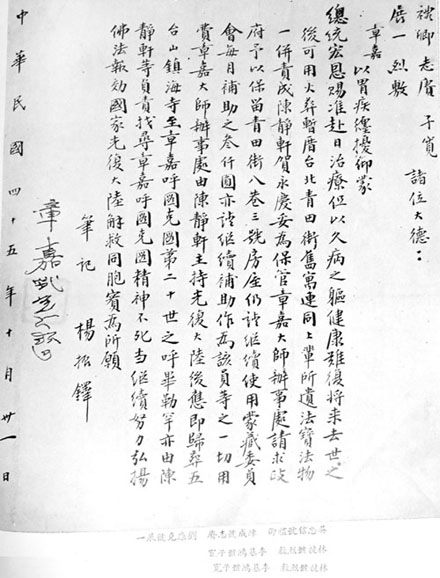 禮卿 志賡 子寬 諸位大德：
展一 烈敷
章嘉以胃疾纏擾仰蒙
總統宏恩賜准赴日治療但以久病之軀健康難復將來去世之
後可用火葬暫厝台北青田街舊寓連同上輩所遺法寶法物
一併責成陳靜軒賀永慶妥為保管章嘉大師辦事處請求政
府予以保留青田街八巷三號房屋仍請繼續使用蒙藏委員
會每月補助之叁仟圓亦請繼續補助作為該員等之一切用
費章嘉大師辦事處由陳靜軒主持光復大陸後應即歸葬五
台山鎮海寺至章嘉呼圖克圖第二十世之呼畢勒罕亦由陳
靜軒等負責找尋章嘉呼圖克圖精神不死当繼續努力弘揚
佛法報効國家光復大陸解救同胞實為所願
筆記 楊振鐸
章嘉
中華民國四十五年十月卅一日